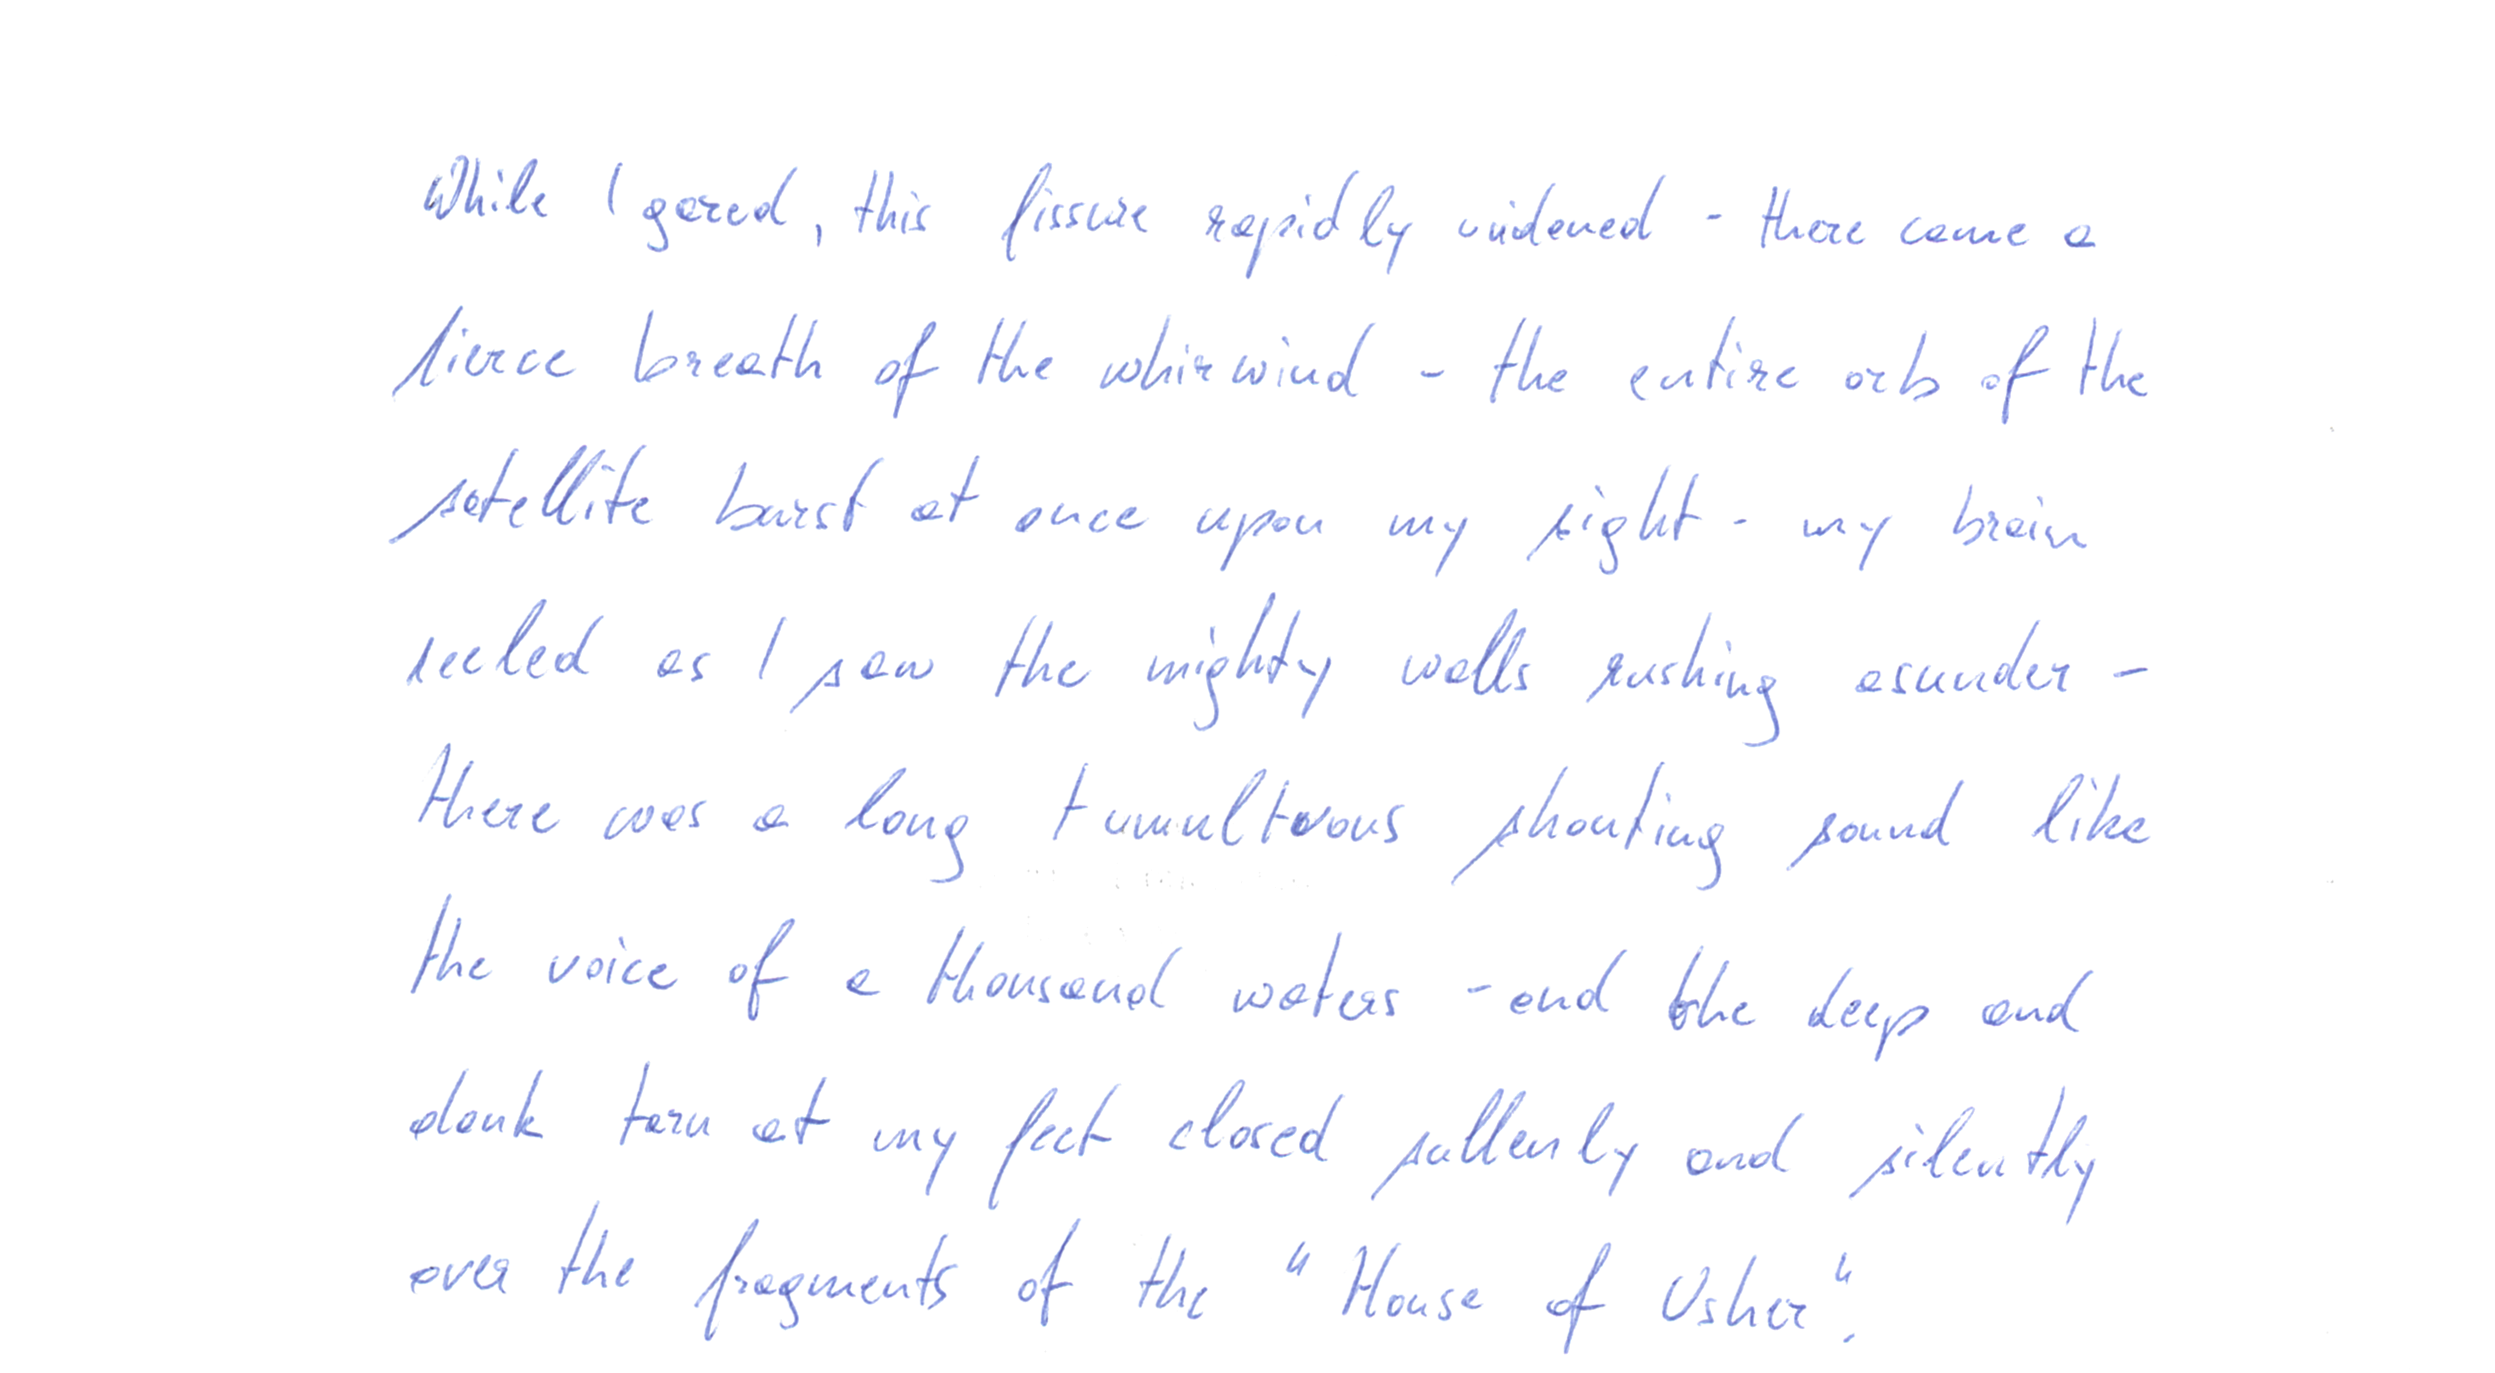 While I gazed, this fissure rapidly widened - there came a
fierce breath of the whirwind - the entire orb of the
satellite burst at once upon my sight - my brain
reeled as I saw the mighty walls rushing asunder -
there was a long tumultuous shouting sound like
the voice of a thousand waters - and the deep and
dank tarn at my feet closed sullenly and silently
over the fragments of the "House of Usher".